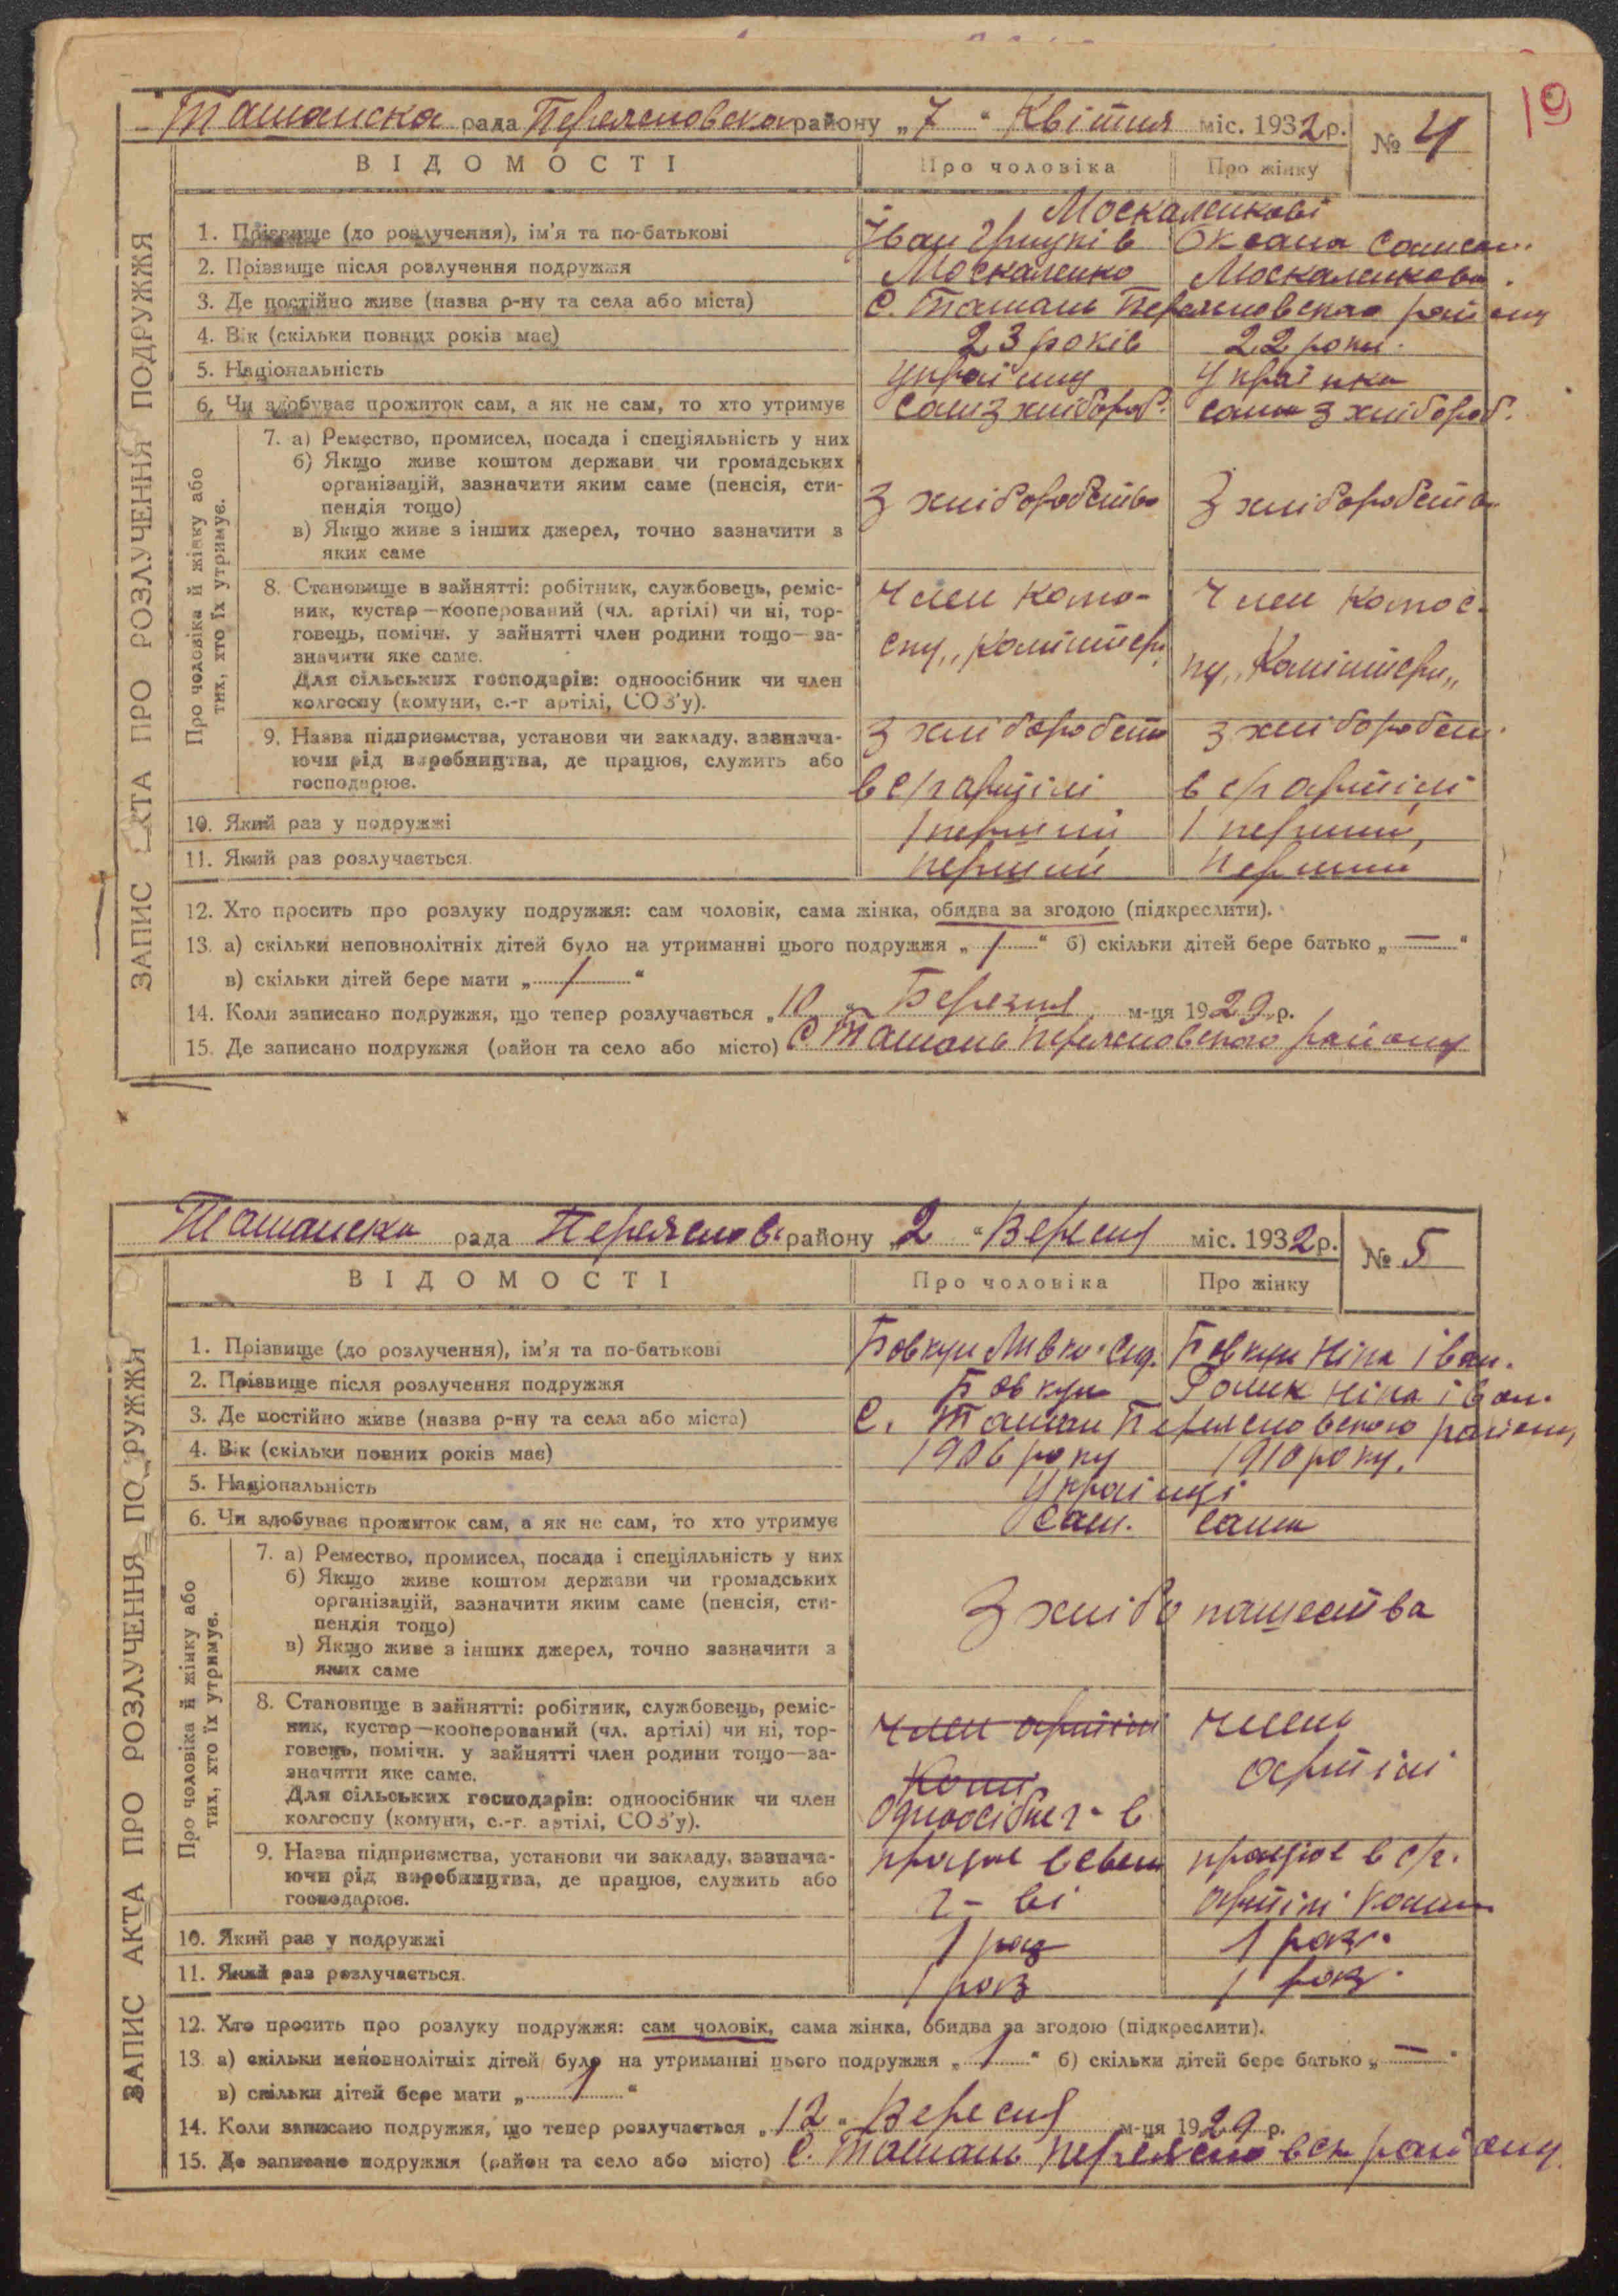 19
Ташанска рада Переяславска району „7“ Квітня міс. 1932 р. № 4
ВІДОМОСТІ Про чоловіка Про жінку
Москаленкові
1. Прізвище (до розлучення), ім'я та по-батькові Іван Грицків Оксана
2. Прізвище після розлучення подружжя Москаленко Москаленкова
3. Де постійно живе (назва р-ну та села або міста) С. Ташань району
4. Вік (скільки повних років має) 23 років 22 роки.
5. Національність Українец Українка
6. Чи здобуває прожиток сам, а як не сам, то хто утримує сам з хлібороб. сама з хлібороб.
ЗАПИС АКТА ПРО РОЗЛУЧЕННЯ ПОДРУЖЖЯ
Про чоловіка й жінку або
тих, хто їх утримує.
7. а) Ремество, промисел, посада і спеціяльність у них
б) Якщо живе коштом держави чи громадських
організацій, зазначити яким саме (пенсія, сти-
пендія тощо) З хліборобства З хліборобства
в) Якщо живе з інших джерел, точно зазначити з
яких саме
8. Становище в зайнятті: робітник, службовець, реміс- Член
ник, кустар—кооперований (чл. артілі) чи ні, тор- Член
говець, помічн. у зайнятті член родини тощо—за-
значити яке саме.
Для сільських господарів: одноосібник чи член
колгоспу (комуни, с.-г артілі, СОЗ'у).
9. Назва підприємства, установи чи закладу, зазнача- З хліборобств З хліборобств
ючи рід виробництва, де працює, служить або
господарює. в с/г артілі в с/г артілі
10. Який раз у подружжі 1 перший 1 перший,
11. Який раз розлучається. перший перший
12. Хто просить про розлуку подружжя: сам чоловік, сама жінка, обидва за згодою (підкреслити).
13. а) скільки неповнолітніх дітей було на утриманні цього подружжя „ 1 “ б) скільки дітей бере батько „ — “
в) скільки дітей бере мати „ 1 “
14. Коли записано подружжя, що тепер розлучається „ 10 “ Березня м-ця 1929 р.
15. Де записано подружжя (район та село або місто) С Ташань району
Ташанска рада Переяслов району „2“ Вересня міс. 1932 р. № 5
ВІДОМОСТІ Про чоловіка Про жінку
1. Прізвище (до розлучення), ім'я та по-батькові Бовкун Бовкун Ніна Іван.
2. Прізвище після розлучення подружжя Бовкун Ніна Іван.
3. Де постійно живе (назва р-ну та села або міста) С. Ташан району
4. Вік (скільки повних років має) 1906 року 1910 року.
5. Національність Українці
6. Чи здобуває прожиток сам, а як не сам, то хто утримує Сам. сама
ЗАПИС АКТА ПРО РОЗЛУЧЕННЯ ПОДРУЖЖЯ
Про чоловіка й жінку або
тих, хто їх утримує.
7. а) Ремество, промисел, посада і спеціяльність у них
б) Якщо живе коштом держави чи громадських
організацій, зазначити яким саме (пенсія, сти- З хлібопашества
пендія тощо)
в) Якщо живе з інших джерел, точно зазначити з
яких саме
8. Становище в зайнятті: робітник, службовець, реміс-
ник, кустар—кооперований (чл. артілі) чи ні, тор- член артілі член
говець, помічн. у зайнятті член родини тощо—за- артілі
значити яке саме.
Для сільських господарів: одноосібник чи член
колгоспу (комуни, с.-г. артілі, СОЗ'у).
9. Назва підприємства, установи чи закладу, зазнача- працює в працює в с/г.
ючи рід виробництва, де працює, служить або
господарює. г-ві артілі
10. Який раз у подружжі 1 раз 1 раз.
11. Який раз розлучається. 1 раз 1 раз.
12. Хто просить про розлуку подружжя: сам чоловік, сама жінка, обидва за згодою (підкреслити).
13. а) скільки неповнолітніх дітей було на утриманні цього подружжя „ 1 “ б) скільки дітей бере батько „ — “
в) скільки дітей бере мати „ 1 “
14. Коли записано подружжя, що тепер розлучається „ 12 “ Вересня м-ця 1929 р.
15. Де записано подружжя (район та село або місто) С. Ташань району